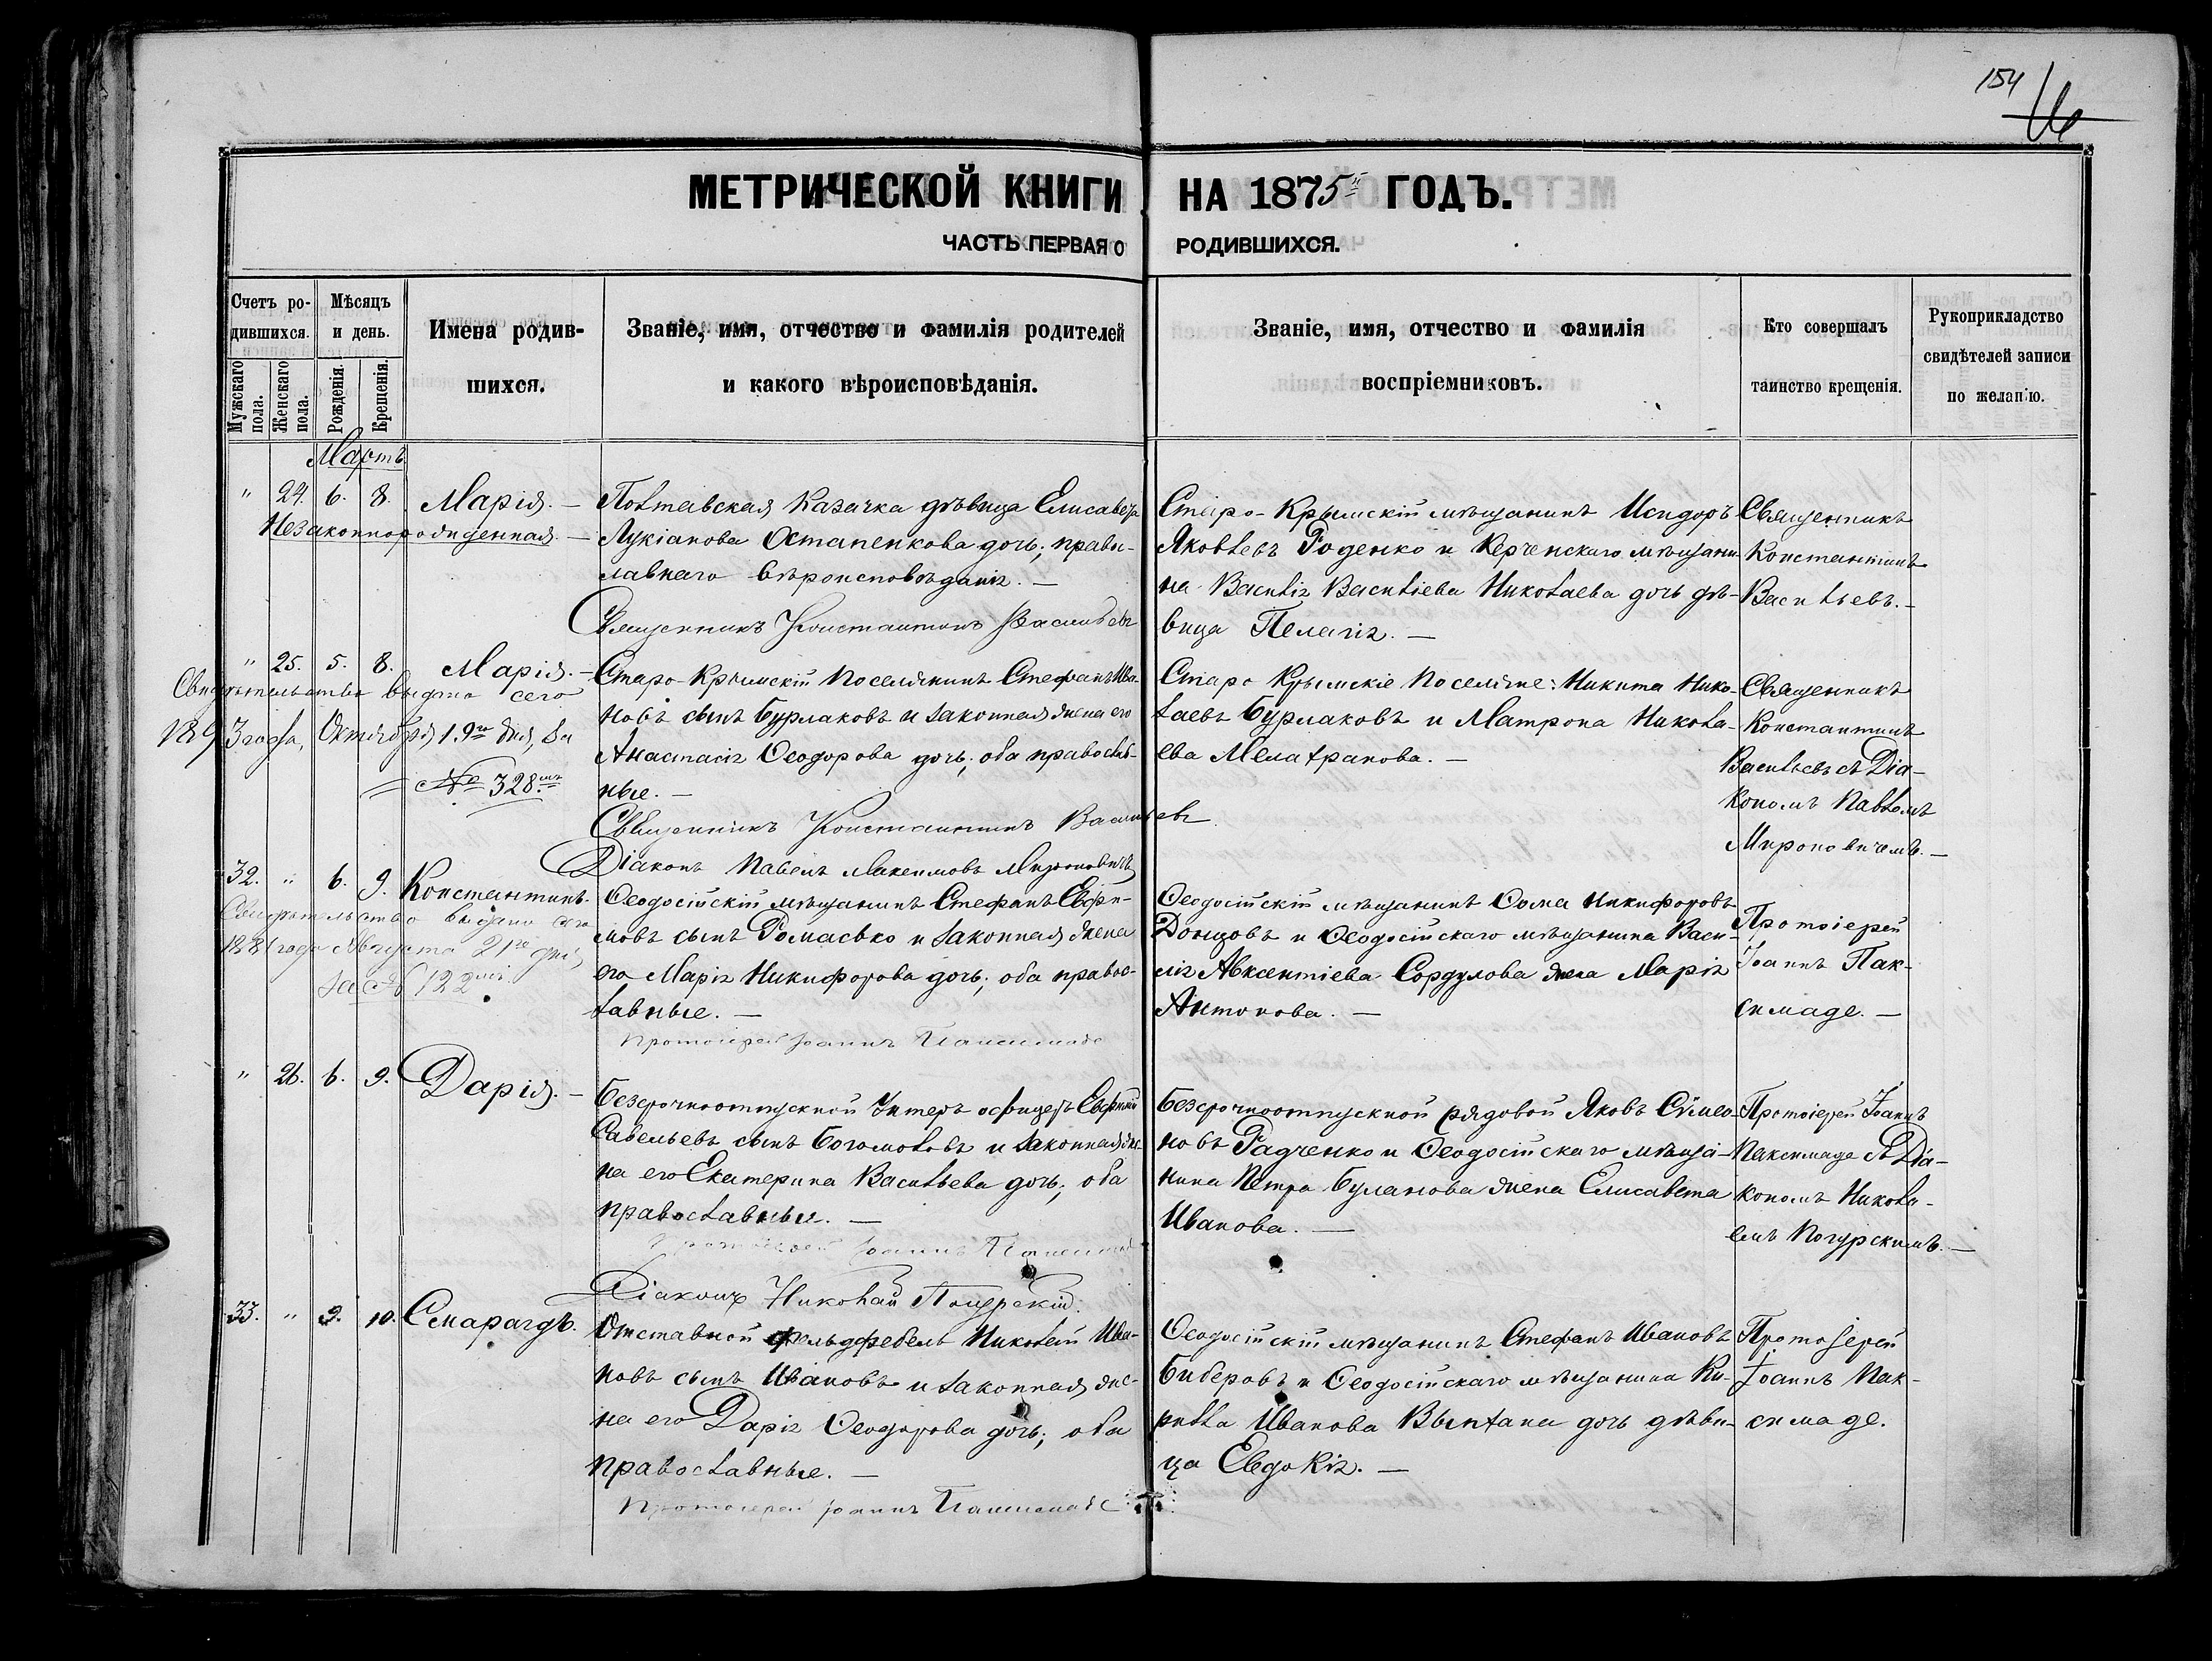 154
16
МЕТРИЧЕСКОЙ КНИГИ НА 1875й ГОДЪ.
ЧАСТЬ ПЕРВАЯ О РОДИВШИХСЯ.
Счетъ ро-
дившихся.
Мужскаго пола.
Женскаго пола.
Мѣсяцъ
и день.
Рожденія.
Крещенія.
Имена родив-
шихся.
Званіе, имя, отчество и фамилія родителей
и какого вѣроисповѣданія.
Званіе, имя, отчество и фамилія
воспріемниковъ.
Кто совершалъ
таинство крещенія.
Рукоприкладство
свидѣтелей записи
по желанію.
Мартъ
" 24. 6. 8. Марія. —
Незаконнорожденная. —
Полтавская казачка дѣвица Елисавета
Лукіанова Остапенкова дочь; право-
славнаго вѣроисповѣданія. —
Священникъ Константинъ Васильевъ
Старо-Крымскій мѣщанинъ Исидоръ
Яковлевъ Роденко и Керченскаго мѣщани-
на Василія Васильева Николаева дочь дѣ-
вица Пелагія. —
Священникъ
Константинъ
Васильевъ. —
" 25. 5. 8. Марія. —
Свидѣтельство выдано сего
1893 года, Октября 19го дня, за
= № 328мъ
Старо-Крымскій поселянинъ Стефанъ Ива-
новъ сынъ Бурлаковъ и законная жена его
Анастасія Ѳеодорова дочь; оба православ-
ные. —
Священникъ Константинъ Васильевъ
Діаконъ Павелъ Максимовъ Мироновичъ
Старо Крымскіе поселяне: Никита Нико-
лаевъ Бурлаковъ и Матрона Никола-
ева Мелатранова. —
Священникъ
Константинъ
Васильевъ съ Діа-
кономъ Павломъ
Мироновичемъ. —
32. " 6. 9. Константинъ.
Свидѣтельство выдано сего
1881 года Августа 21го дня,
за № 122мъ.
Ѳеодосійскій мѣщанинъ Стефанъ Евфи-
мовъ сынъ Ромасько и законная жена
его Марія Никифорова дочь; оба правос-
лавные. —
Протоіерей Іоаннъ Паксимаде
Ѳеодосійскій мѣщанинъ Ѳома Никифоровъ
Донцовъ и Ѳеодосійскаго мѣщанина Васи-
лія Авксентіева Сордулова жена Марія
Антонова. —
Протоіерей
Іоаннъ Пак-
симаде. —
" 26. 6. 9. Дарія. —
Безсрочноотпускной Унтеръ офицеръ Евфимій
Савельевъ сынъ Богомоловъ и законная же-
на его Екатерина Васильева дочь; оба
православные. —
Протоіерей Іоаннъ Паксимаде
Діаконъ Николай Погурскій.
Безсрочноотпускной рядовой Яковъ Сѵмео-
новъ Радченко и Ѳеодосійскаго мѣща-
нина Петра Буланова жена Елисавета
Иванова. —
Протоіерей Іоаннъ
Паксимаде съ Діа-
кономъ Никола-
емъ Погурскимъ. —
33. " 9. 10. Смарагдъ.
Отставной фельдфебель Николай Ива-
новъ сынъ Ивановъ и законная же-
на его Дарія Ѳеодорова дочь; оба
православные. —
Протоіерей Іоаннъ Паксимаде
Ѳеодосійскій мѣщанинъ Стефанъ Ивановъ
Биберовъ и Ѳеодосійскаго мѣщанина Ки-
рилла Иванова дочь дѣви-
ца Евдокія. —
Протоіерей
Іоаннъ Пак-
симаде.